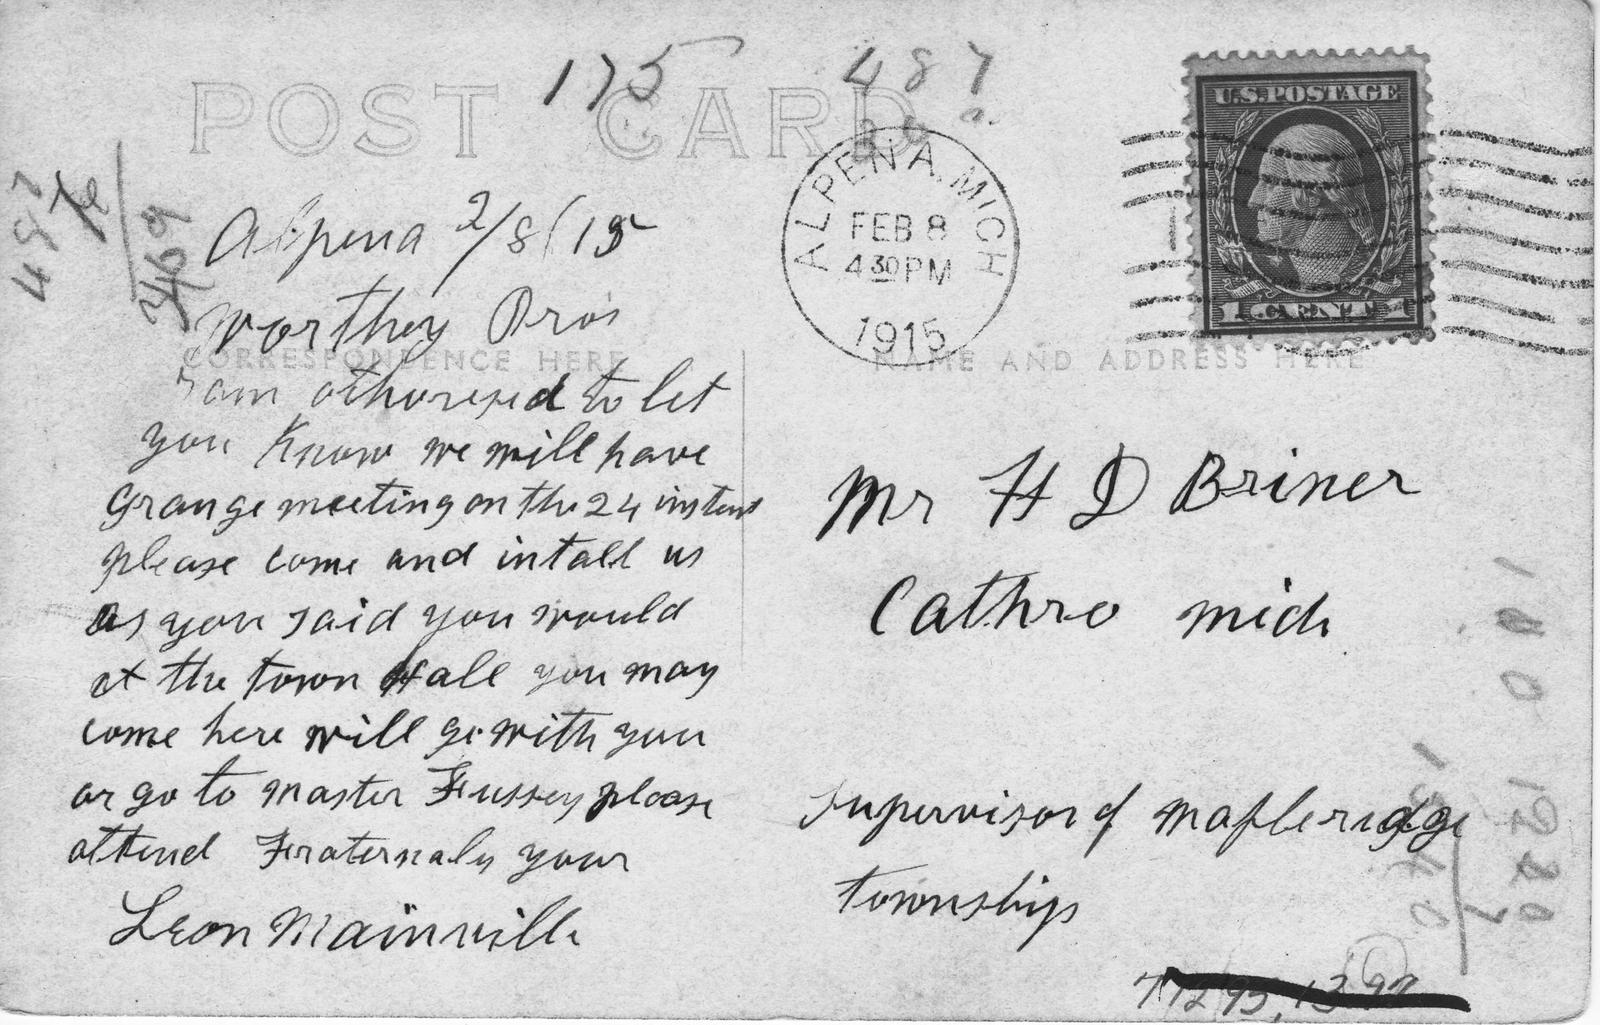 POST CARD
175
487
ALPENA, MICH
FEB 8
4 30 PM
1915
U.S. POSTAGE
1 CENT 1
Alpena 2/8/15
Worthey Bros
CORRESPONDENCE HERE
NAME AND ADDRESS HERE
I am othoresed to let
you Know we will have
Grange meeting on the 24 instent
please come and intall us
as you said you would
at the town Hall you may
come here will go with you
or go to master Fussey please
attend Fraternaly your
Leon Mainville
Mr H D Briner
Cathro Mich
Supervisor of Mapleridge
township
487